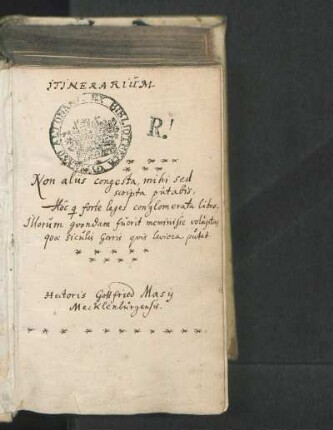 ITINERARIUM
R!
Non aliis congesta, mihi sed
scripta putabis.
Hoc q forte leges conglomerata libro.
Illorum quondam fuerit meminisse voluptas
quae Siculis Gerris quis leviora putet
Hectoris Gottfried Masij
Mecklenburgensis.